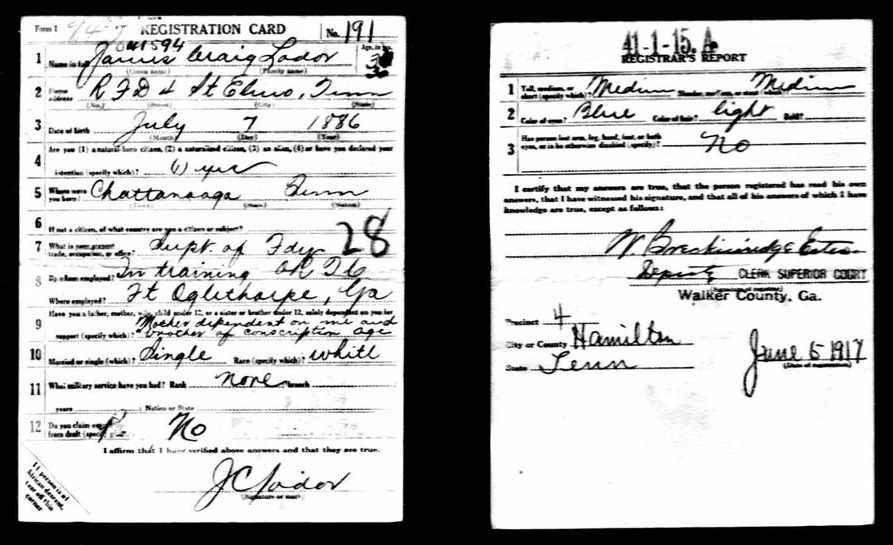 Form 1
REGISTRATION CARD
No. 191
1 Name in full James Craig Lodor Age, in yrs.
(Given name) (Family name)
2 Home address R F D 4 St Elmo, Tenn
(No.) (Street) (City) (State)
3 Date of birth July 7 1886
(Month) (Day) (Year)
Are you (1) a natural-born citizen, (2) a naturalized citizen, (3) an alien, (4) or have you declared your
4 intention (specify which)? (1) yes
5 Where were you born? Chattanooga Tenn
(Town) (State) (Nation)
6 If not a citizen, of what country are you a citizen or subject?
7 What is your present trade, occupation, or office? Supt. of Fdy 28
8 By whom employed? In training
Where employed? Ft Oglethorpe, Ga
Have you a father, mother, wife, child under 12, or a sister or brother under 12, solely dependent on you for
9 support (specify which)? Mother dependent on me and
brother of conscription age
10 Married or single (which)? Single Race (specify which)? White
11 What military service have you had? Rank none ; branch
years ; Nation or State
12 Do you claim exemption from draft (specify grounds)? No
I affirm that I have verified above answers and that they are true.
J C Lodor
(Signature or mark)
If person is of
African descent,
tear off this
corner
41-1-15. A
REGISTRAR'S REPORT
1 Tall, medium, or short (specify which)? Medium Slender, medium, or stout (which)? Medium
2 Color of eyes? Blue Color of hair? light Bald?
3 Has person lost arm, leg, hand, foot, or both
eyes, or is he otherwise disabled (specify)? No
I certify that my answers are true, that the person registered has read his own
answers, that I have witnessed his signature, and that all of his answers of which I have
knowledge are true, except as follows:
W Breckinridge
Deputy CLERK SUPERIOR COURT
(Signature of registrar)
Walker County, Ga.
Precinct 4
City or County Hamilton
State Tenn
June 5 1917
(Date of registration)